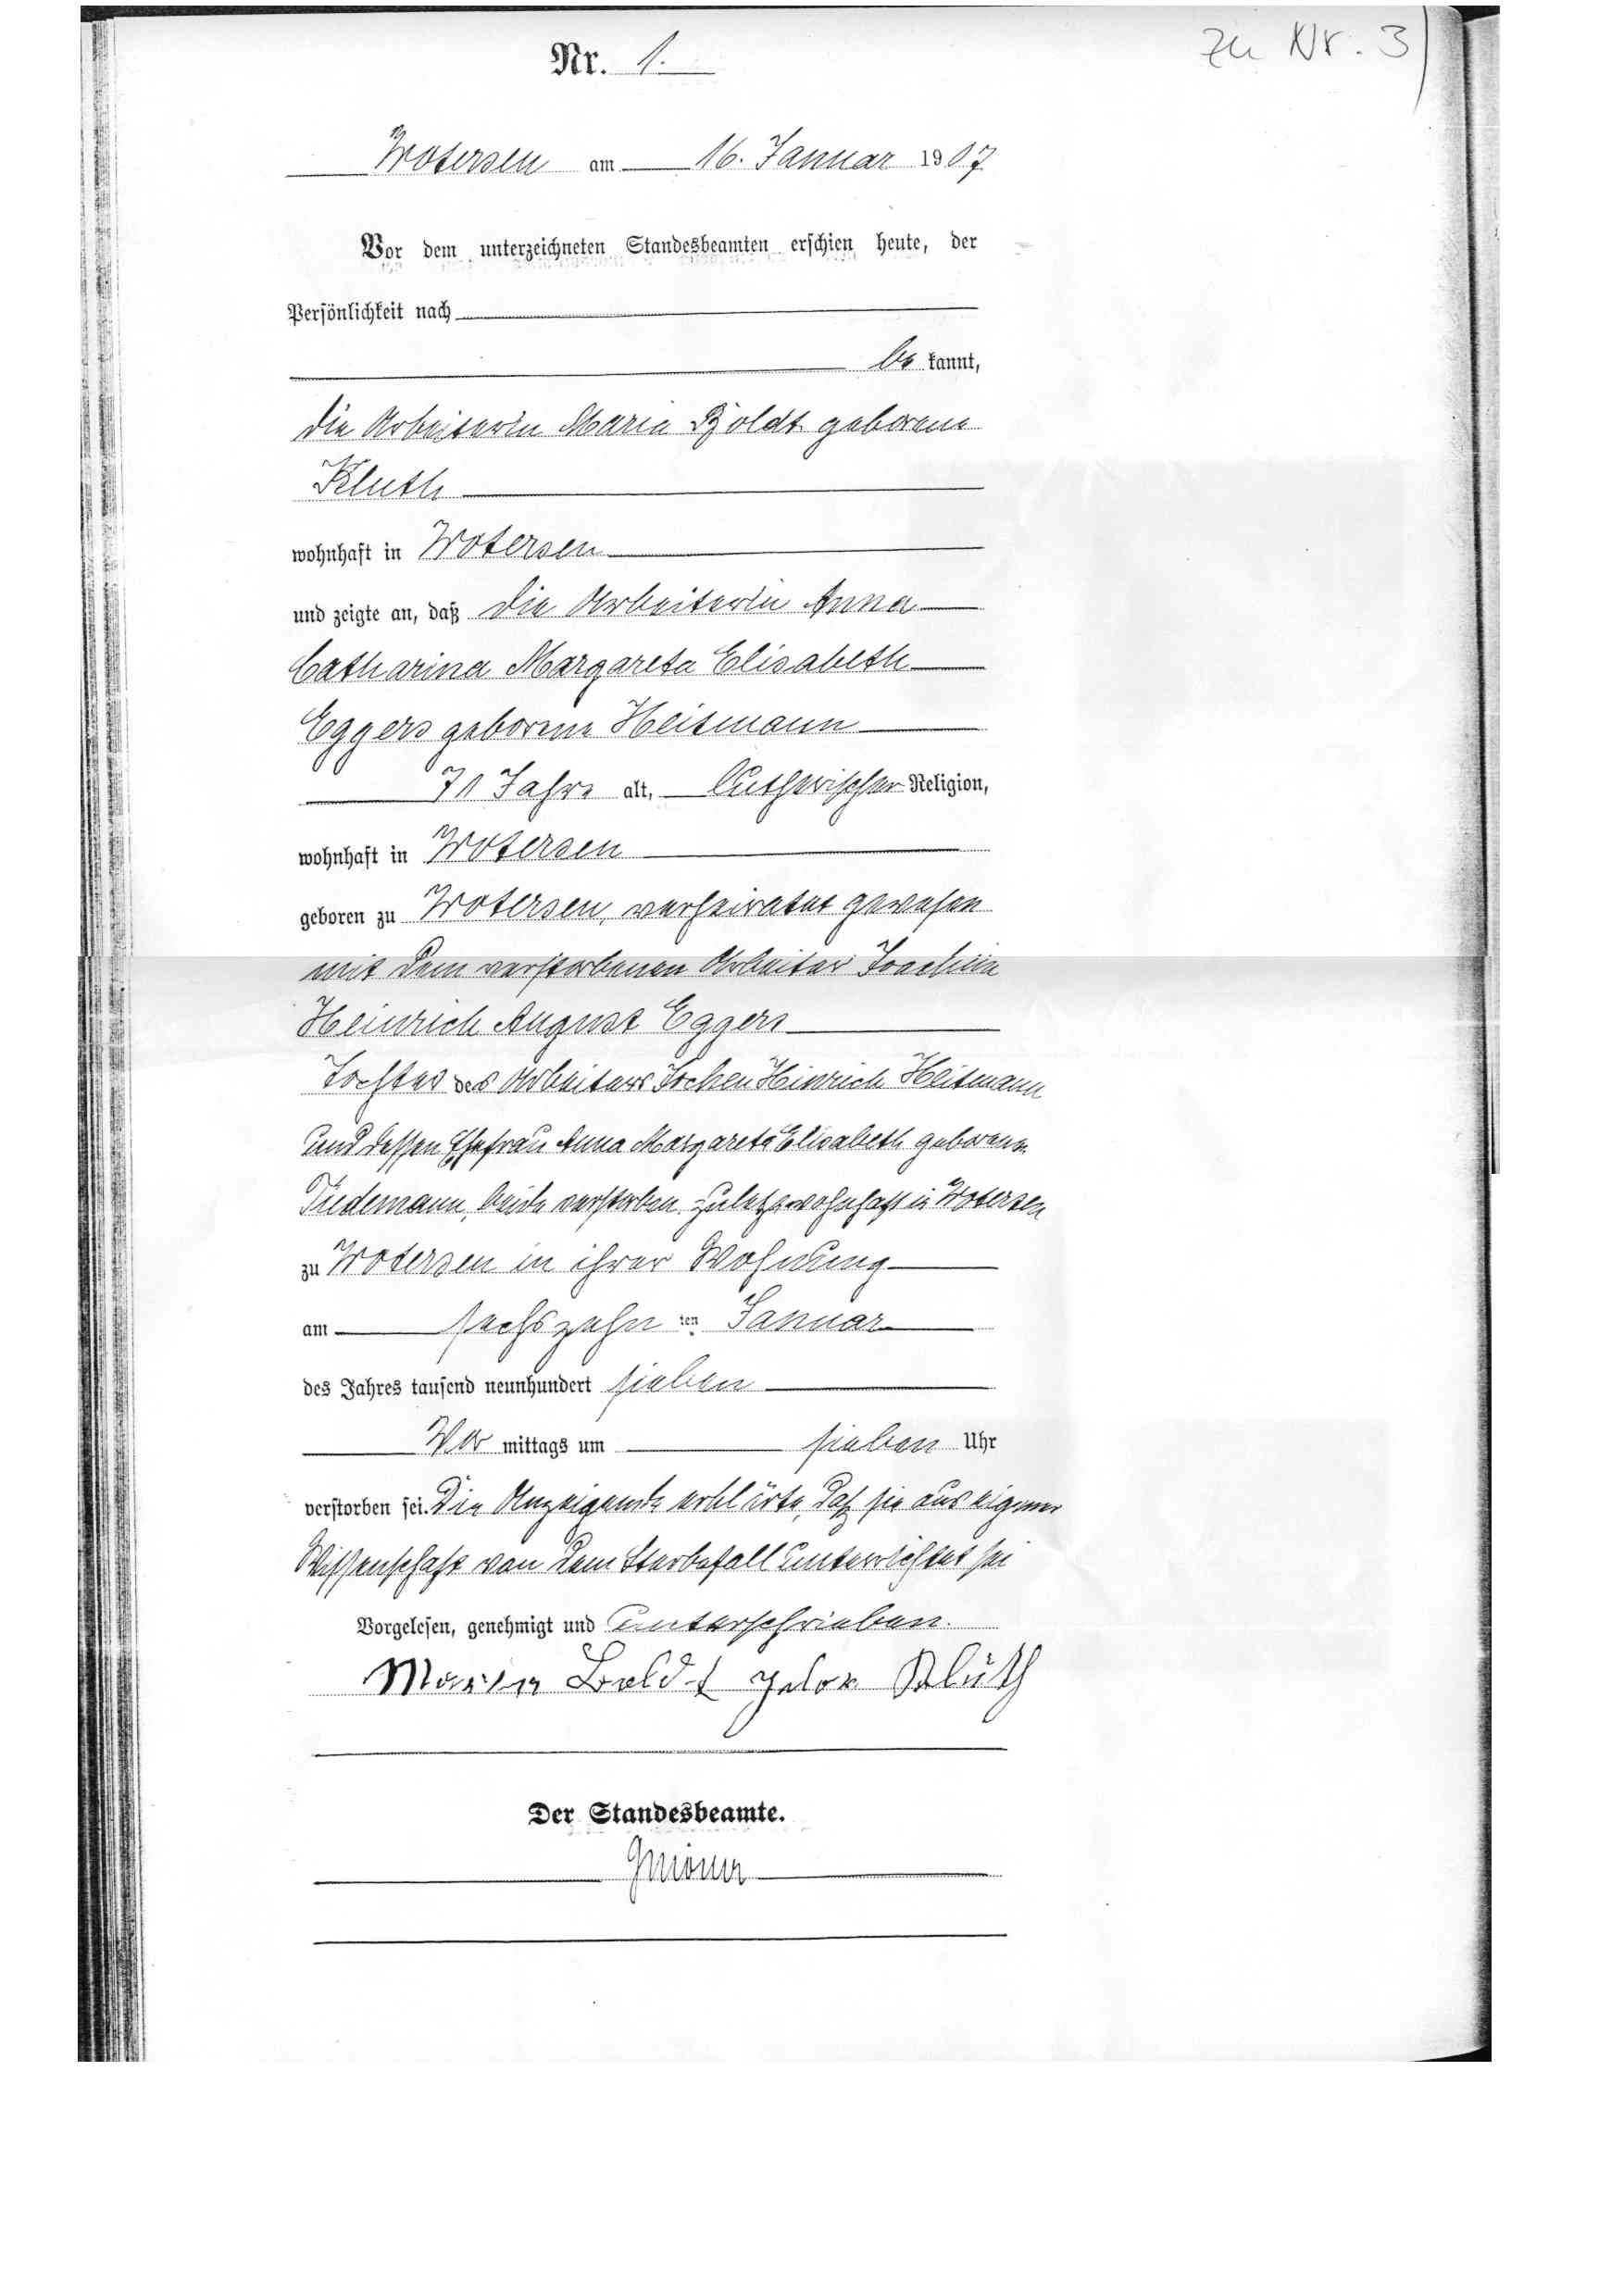 zu Nr. 3)
Nr. 1.
Wotersen am 16. Januar 1907
Vor dem unterzeichneten Standesbeamten erschien heute, der
Persönlichkeit nach
be kannt,
die Arbeiterin Maria Boldt geborene
Kluth
wohnhaft in Wotersen
und zeigte an, daß die Arbeiterin Anna
Catharina Margareta Elisabeth
Eggers geborene Heitmann
71 Jahre alt, lutherischer Religion,
wohnhaft in Wotersen
geboren zu Wotersen, verheiratet gewesen
mit dem verstorbenen Arbeiter Joachim
Heinrich August Eggers
Tochter des Arbeiters Jochen Hinrich Heitmann
und dessen Ehefrau Anna Margareta Elisabeth geborene
Tiedemann, beide verstorben zuletzt wohnhaft in Wotersen
zu Wotersen in ihrer Wohnung
am sechszehn ten Januar
des Jahres tausend neunhundert sieben
Vor mittags um sieben Uhr
verstorben sei. Die Anzeigende erklärte, daß sie aus eigener
Wissenschaft von dem Sterbefall unterrichtet sei
Vorgelesen, genehmigt und unterschrieben.
Maria Boldt gebor Klüth
Der Standesbeamte.